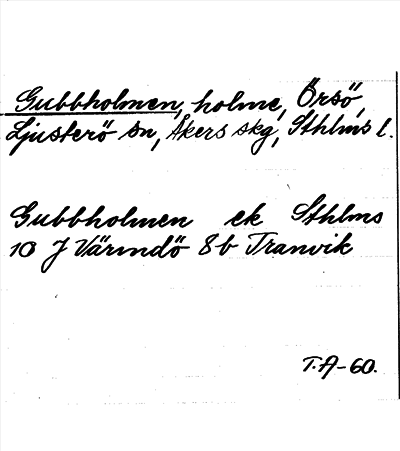 Gubbholmen, holme, Örsö,
Ljusterö sn, Åkers skg, Sthlms l.
Gubbholmen ek Sthlms
10 J Värmdö 8b Tranvik
T.A-60.